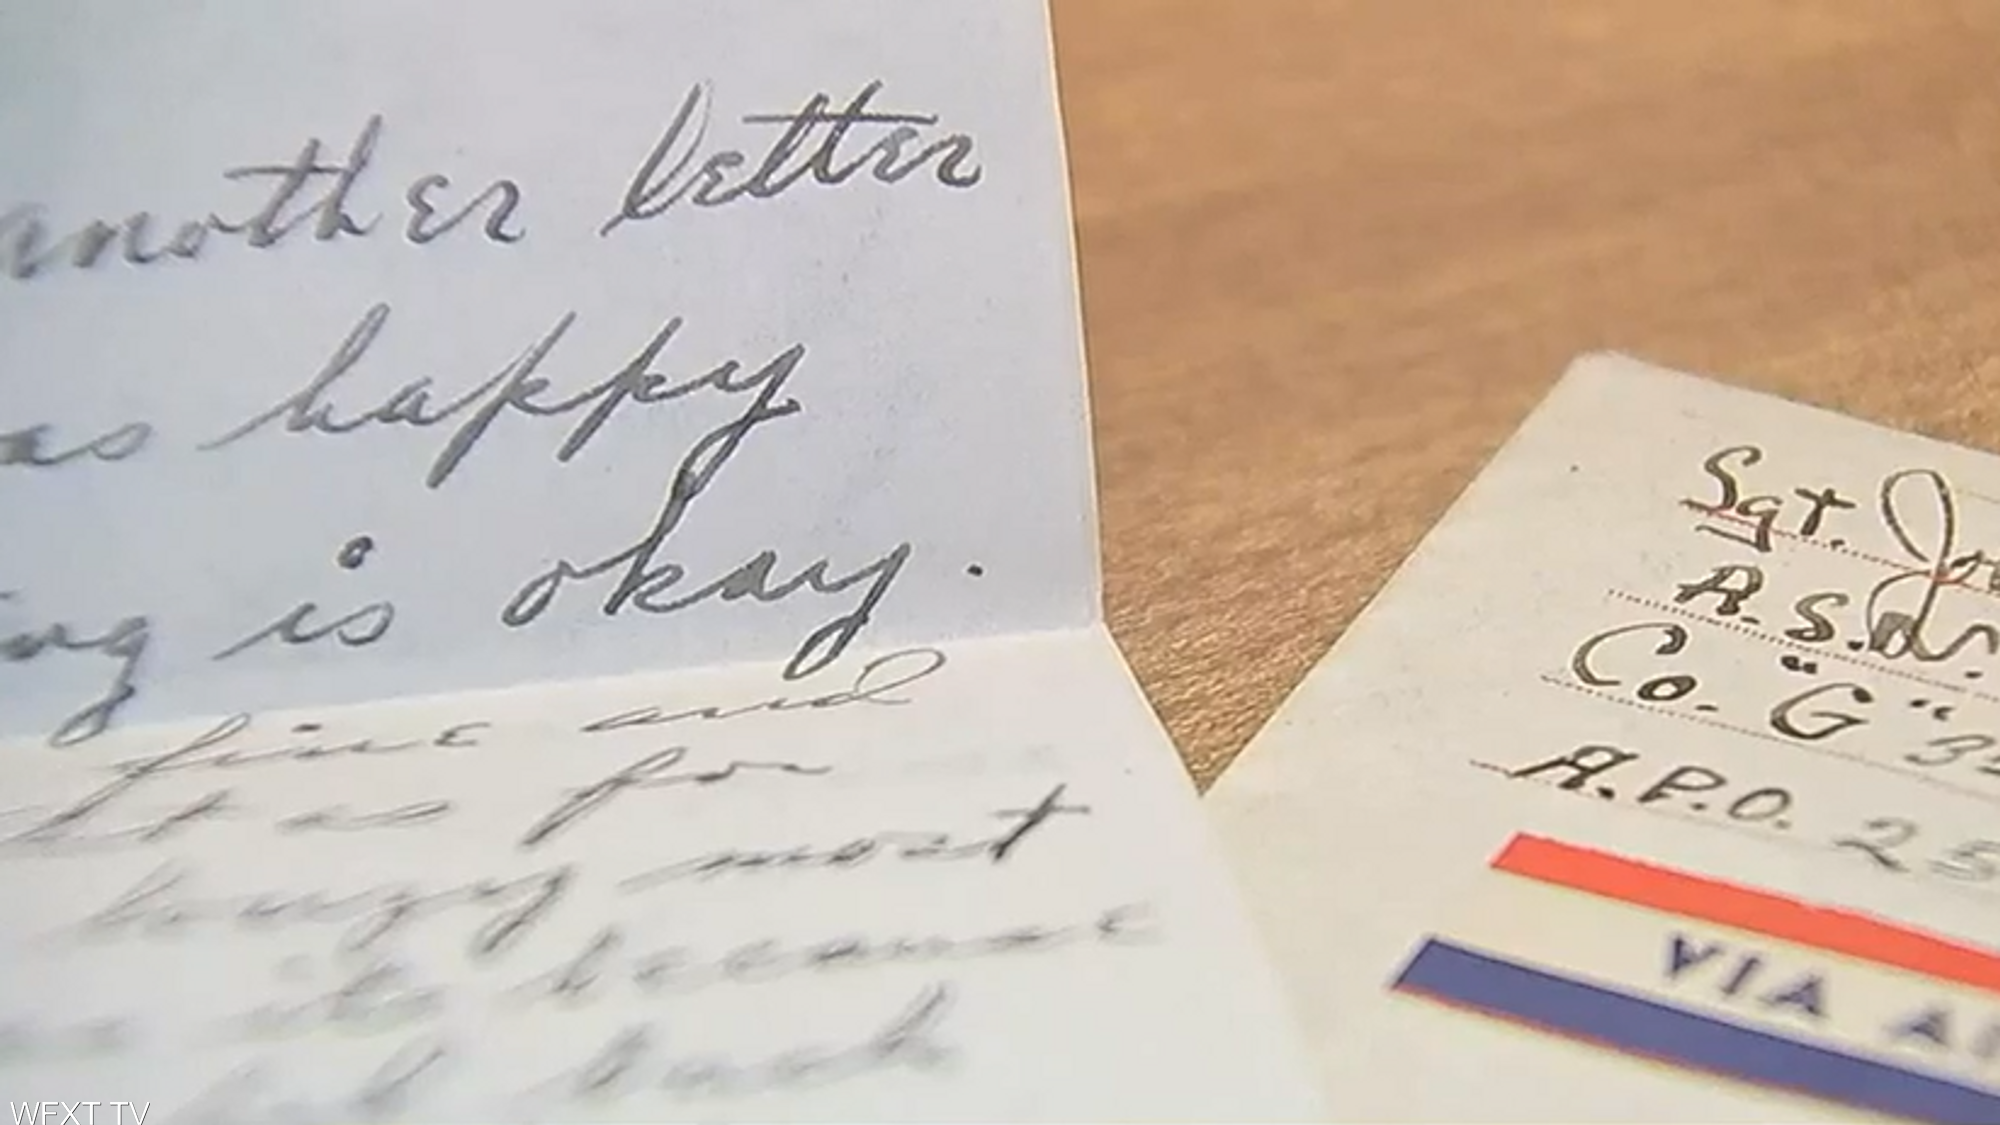 another letter
as happy
ing is okay.
fine and
as for
lousy most
because
back
Sgt. Jo
A.S.
Co. "G" 3
A.P.O. 25
VIA AI
WFXT TV